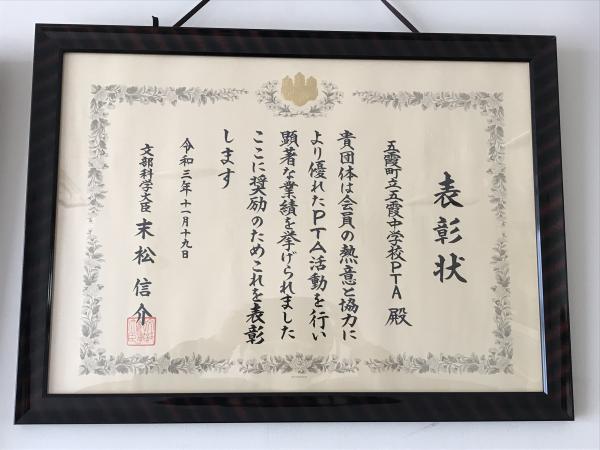 表彰状
五霞町立五霞中学校PTA 殿
貴団体は会員の熱意と協力に
より優れたPTA活動を行い
顕著な業績を挙げられました
ここに奨励のためこれを表彰
します
令和三年十一月十九日
文部科学大臣 末松信介